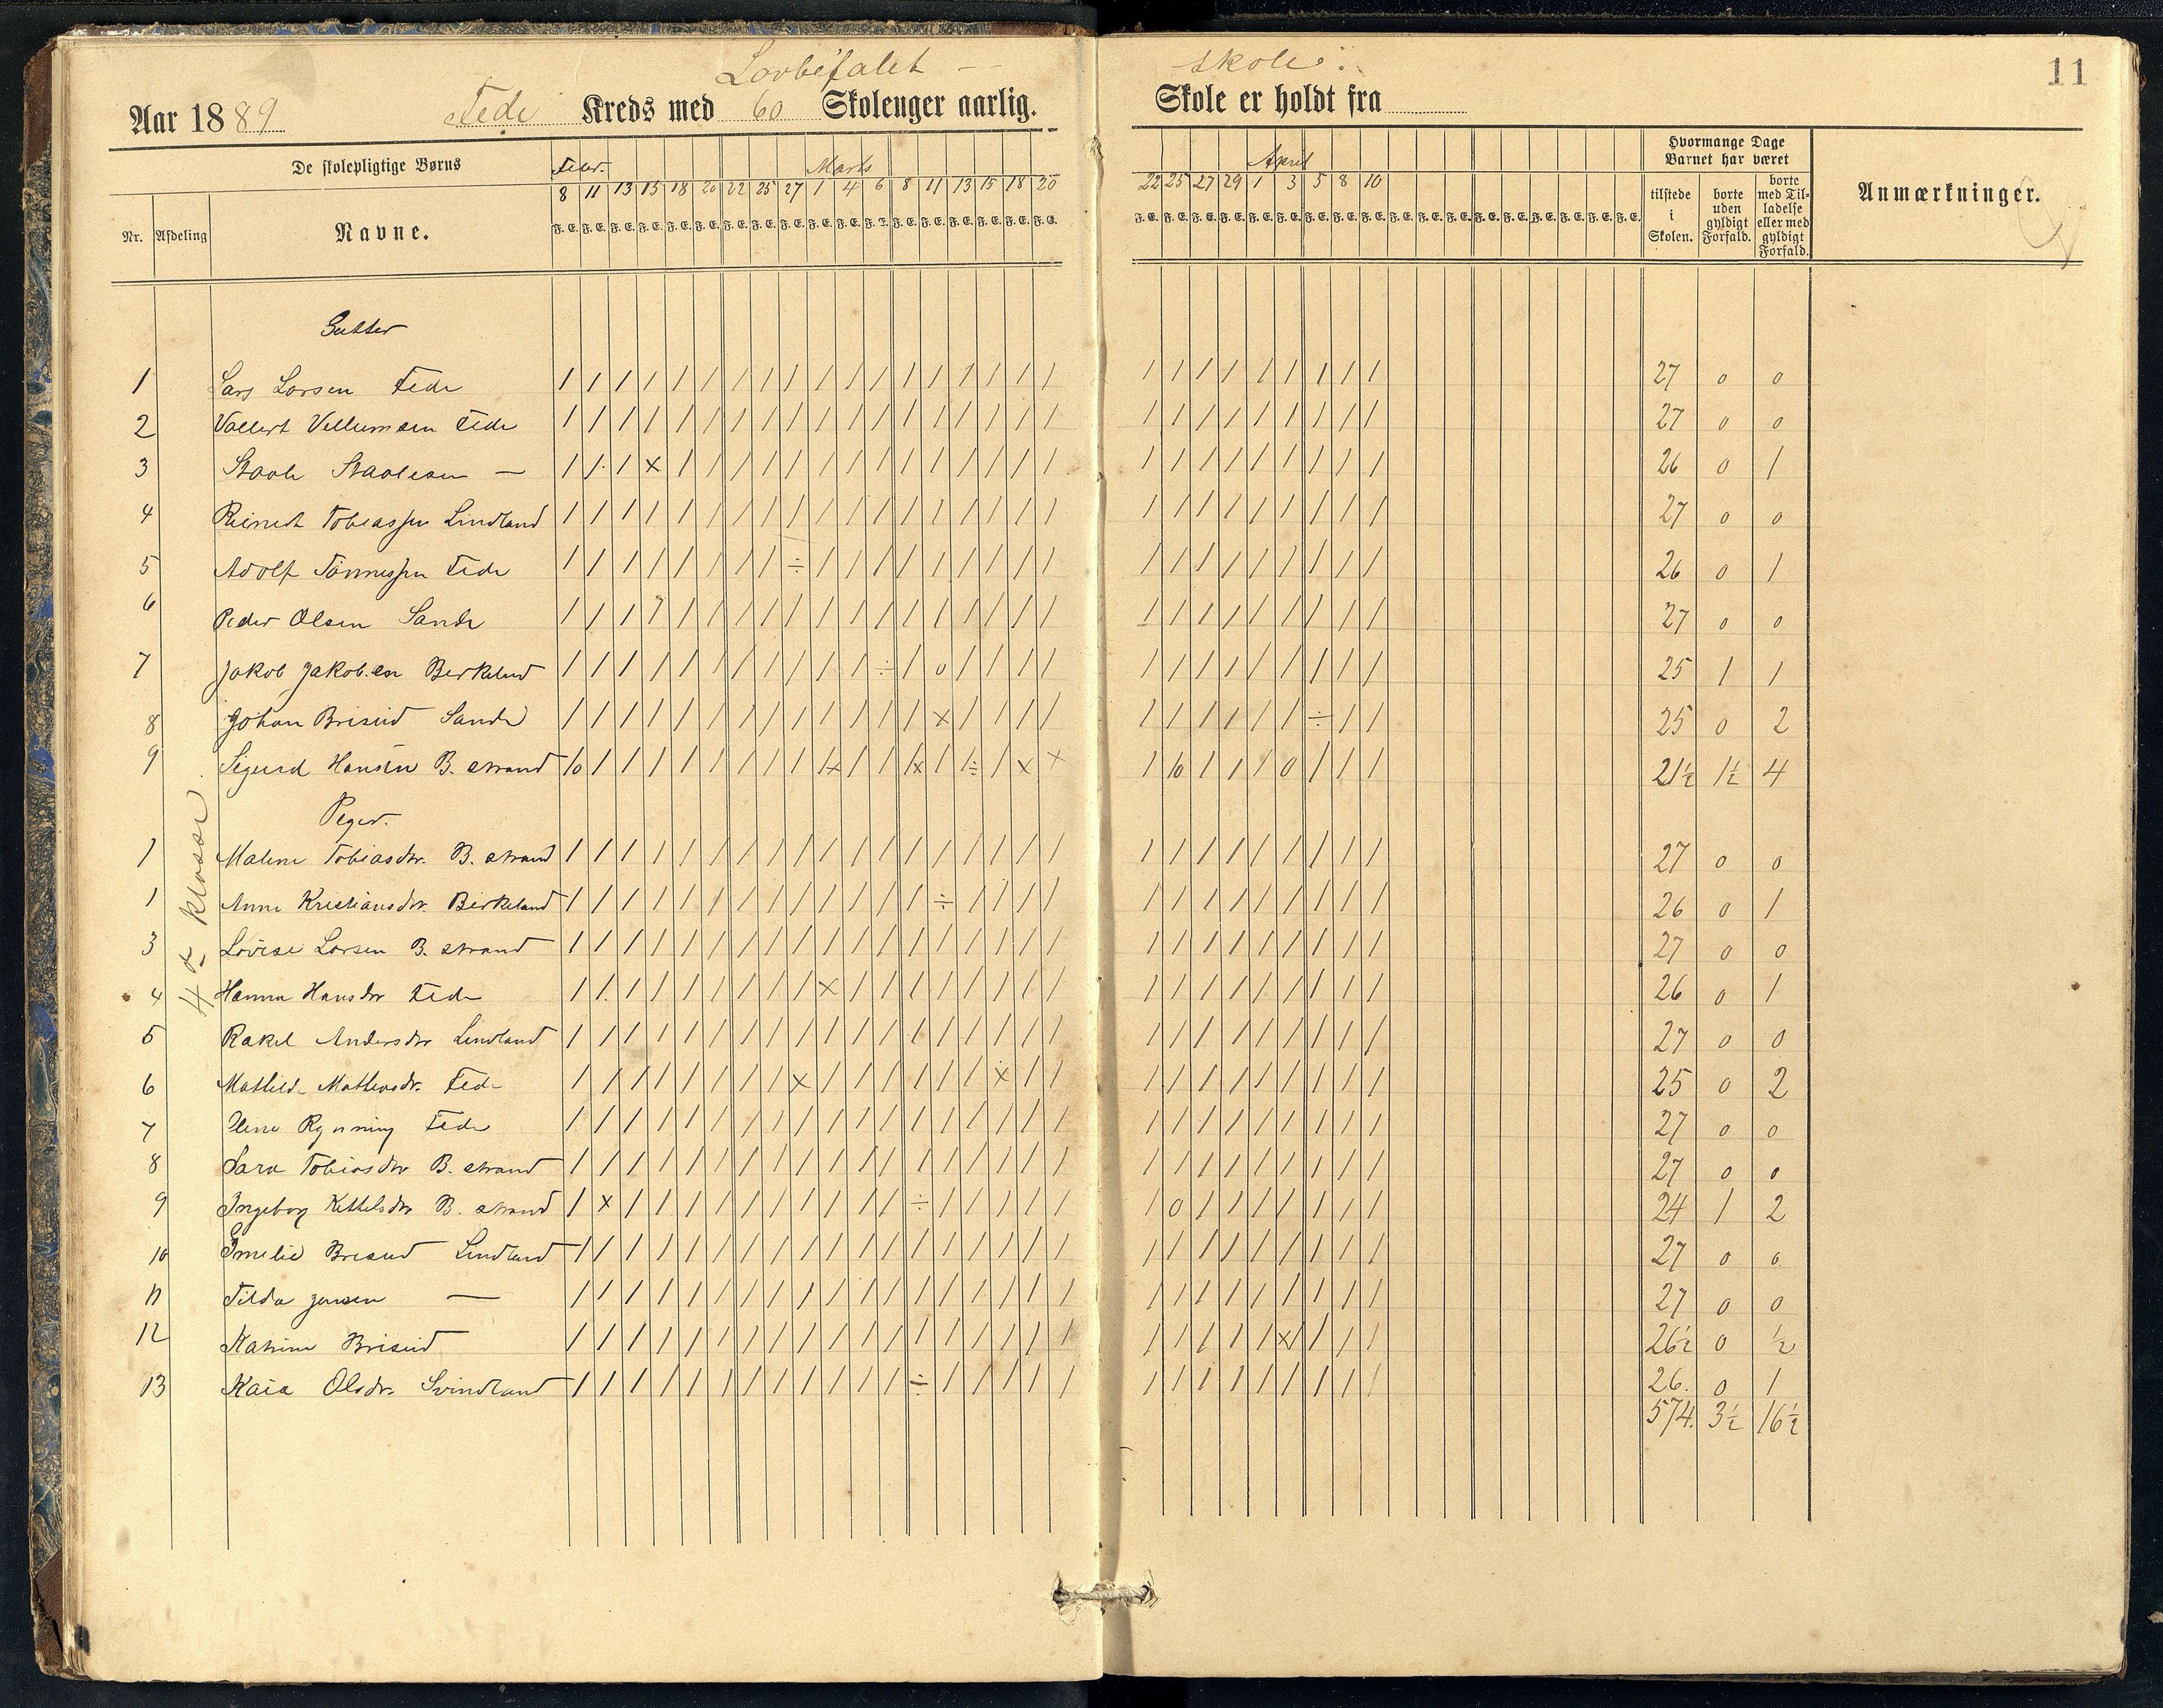 Lovbefalet — skole.
11
Aar 1889 Fede Kreds med 60 Skolenger aarlig. Skole er holdt fra
De skolepligtige Børns
Nr. Afdeling Navne.
Febr. Marts April
8 11 13 15 18 20 22 25 27 1 4 6 8 11 13 15 18 20 22 25 27 29 1 3 5 8 10
F. E. F. E. F. E. F. E. F. E. F. E. F. E. F. E. F. E. F. E. F. E. F. E. F. E. F. E. F. E. F. E. F. E. F. E. F. E. F. E. F. E. F. E. F. E. F. E. F. E. F. E. F. E. F. E. F. E. F. E. F. E. F. E. F. E. F. E. F. E. F. E.
Hvormange Dage Barnet har været
tilstede i Skolen.
borte uden gyldigt Forfald.
borte med Tilladelse eller med gyldigt Forfald.
Anmærkninger.
Gutter
1 Lars Larsen Fede / / / / / / / / / / / / / / / / / / / / / / / / / / / 27 0 0
2 Vallert Vellumsen Fede / / / / / / / / / / / / / / / / / / / / / / / / / / / 27 0 0
3 Staale Staalesen — / / / x / / / / / / / / / / / / / / / / / / / / / / / 26 0 1
4 Reinert Tobiassen Lindland / / / / / / / / / / / / / / / / / / / / / / / / / / / 27 0 0
5 Adolf Tönnessen Fede / / / / / / / / ÷ / / / / / / / / / / / / / / / / / / 26 0 1
6 Peder Olsen Sande / / / / / / / / / / / / / / / / / / / / / / / / / / / 27 0 0
7 Jakob Jakobsen Birkeland / / / / / / / / / / / ÷ / 0 / / / / / / / / / / / / / 25 1 1
8 Johan Briseid Sande / / / / / / / / / / / / / x / / / / / / / / / / ÷ / / 25 0 2
9 Sigurd Hansen B. strand /0 / / / / / / / / /x / / /x / /÷ / x x / /0 / / / 0 / / / 21½ 1½ 4
Piger.
4de klasse
1 Malene Tobiasdtr. B. strand / / / / / / / / / / / / / / / / / / / / / / / / / / / 27 0 0
1 Anne Kristiansdtr. Birkeland / / / / / / / / / / / / / ÷ / / / / / / / / / / / / / 26 0 1
3 Lovise Larsen B. strand / / / / / / / / / / / / / / / / / / / / / / / / / / / 27 0 0
4 Hanna Hansdtr Fede / / / / / / / / / x / / / / / / / / / / / / / / / / / 26 0 1
5 Rakel Andersdtr Lindland / / / / / / / / / / / / / / / / / / / / / / / / / / / 27 0 0
6 Mathilde Mathiasdtr. Fede / / / / / / / / x / / / / / / x / / / / / / / / / / / 25 0 2
7 Eline Rynning Fede / / / / / / / / / / / / / / / / / / / / / / / / / / / 27 0 0
8 Sara Tobiasdtr B. strand / / / / / / / / / / / / / / / / / / / / / / / / / / / 27 0 0
9 Ingeborg Kittelsdtr B. strand / x / / / / / / / / / / ÷ / / / / / / 0 / / / / / / / 24 1 2
10 Emelie Briseid Lindland / / / / / / / / / / / / / / / / / / / / / / / / / / / 27 0 0
11 Tilda Jensen — / / / / / / / / / / / / / / / / / / / / / / / / / / / 27 0 0
12 Katrine Briseid / / / / / / / / / / / / / / / / / / / / / / / x/ / / / 26½ 0 ½
13 Kaia Olsdr. Svindland / / / / / / / / / / / / ÷ / / / / / / / / / / / / / / 26. 0 1
574. 3½ 16½